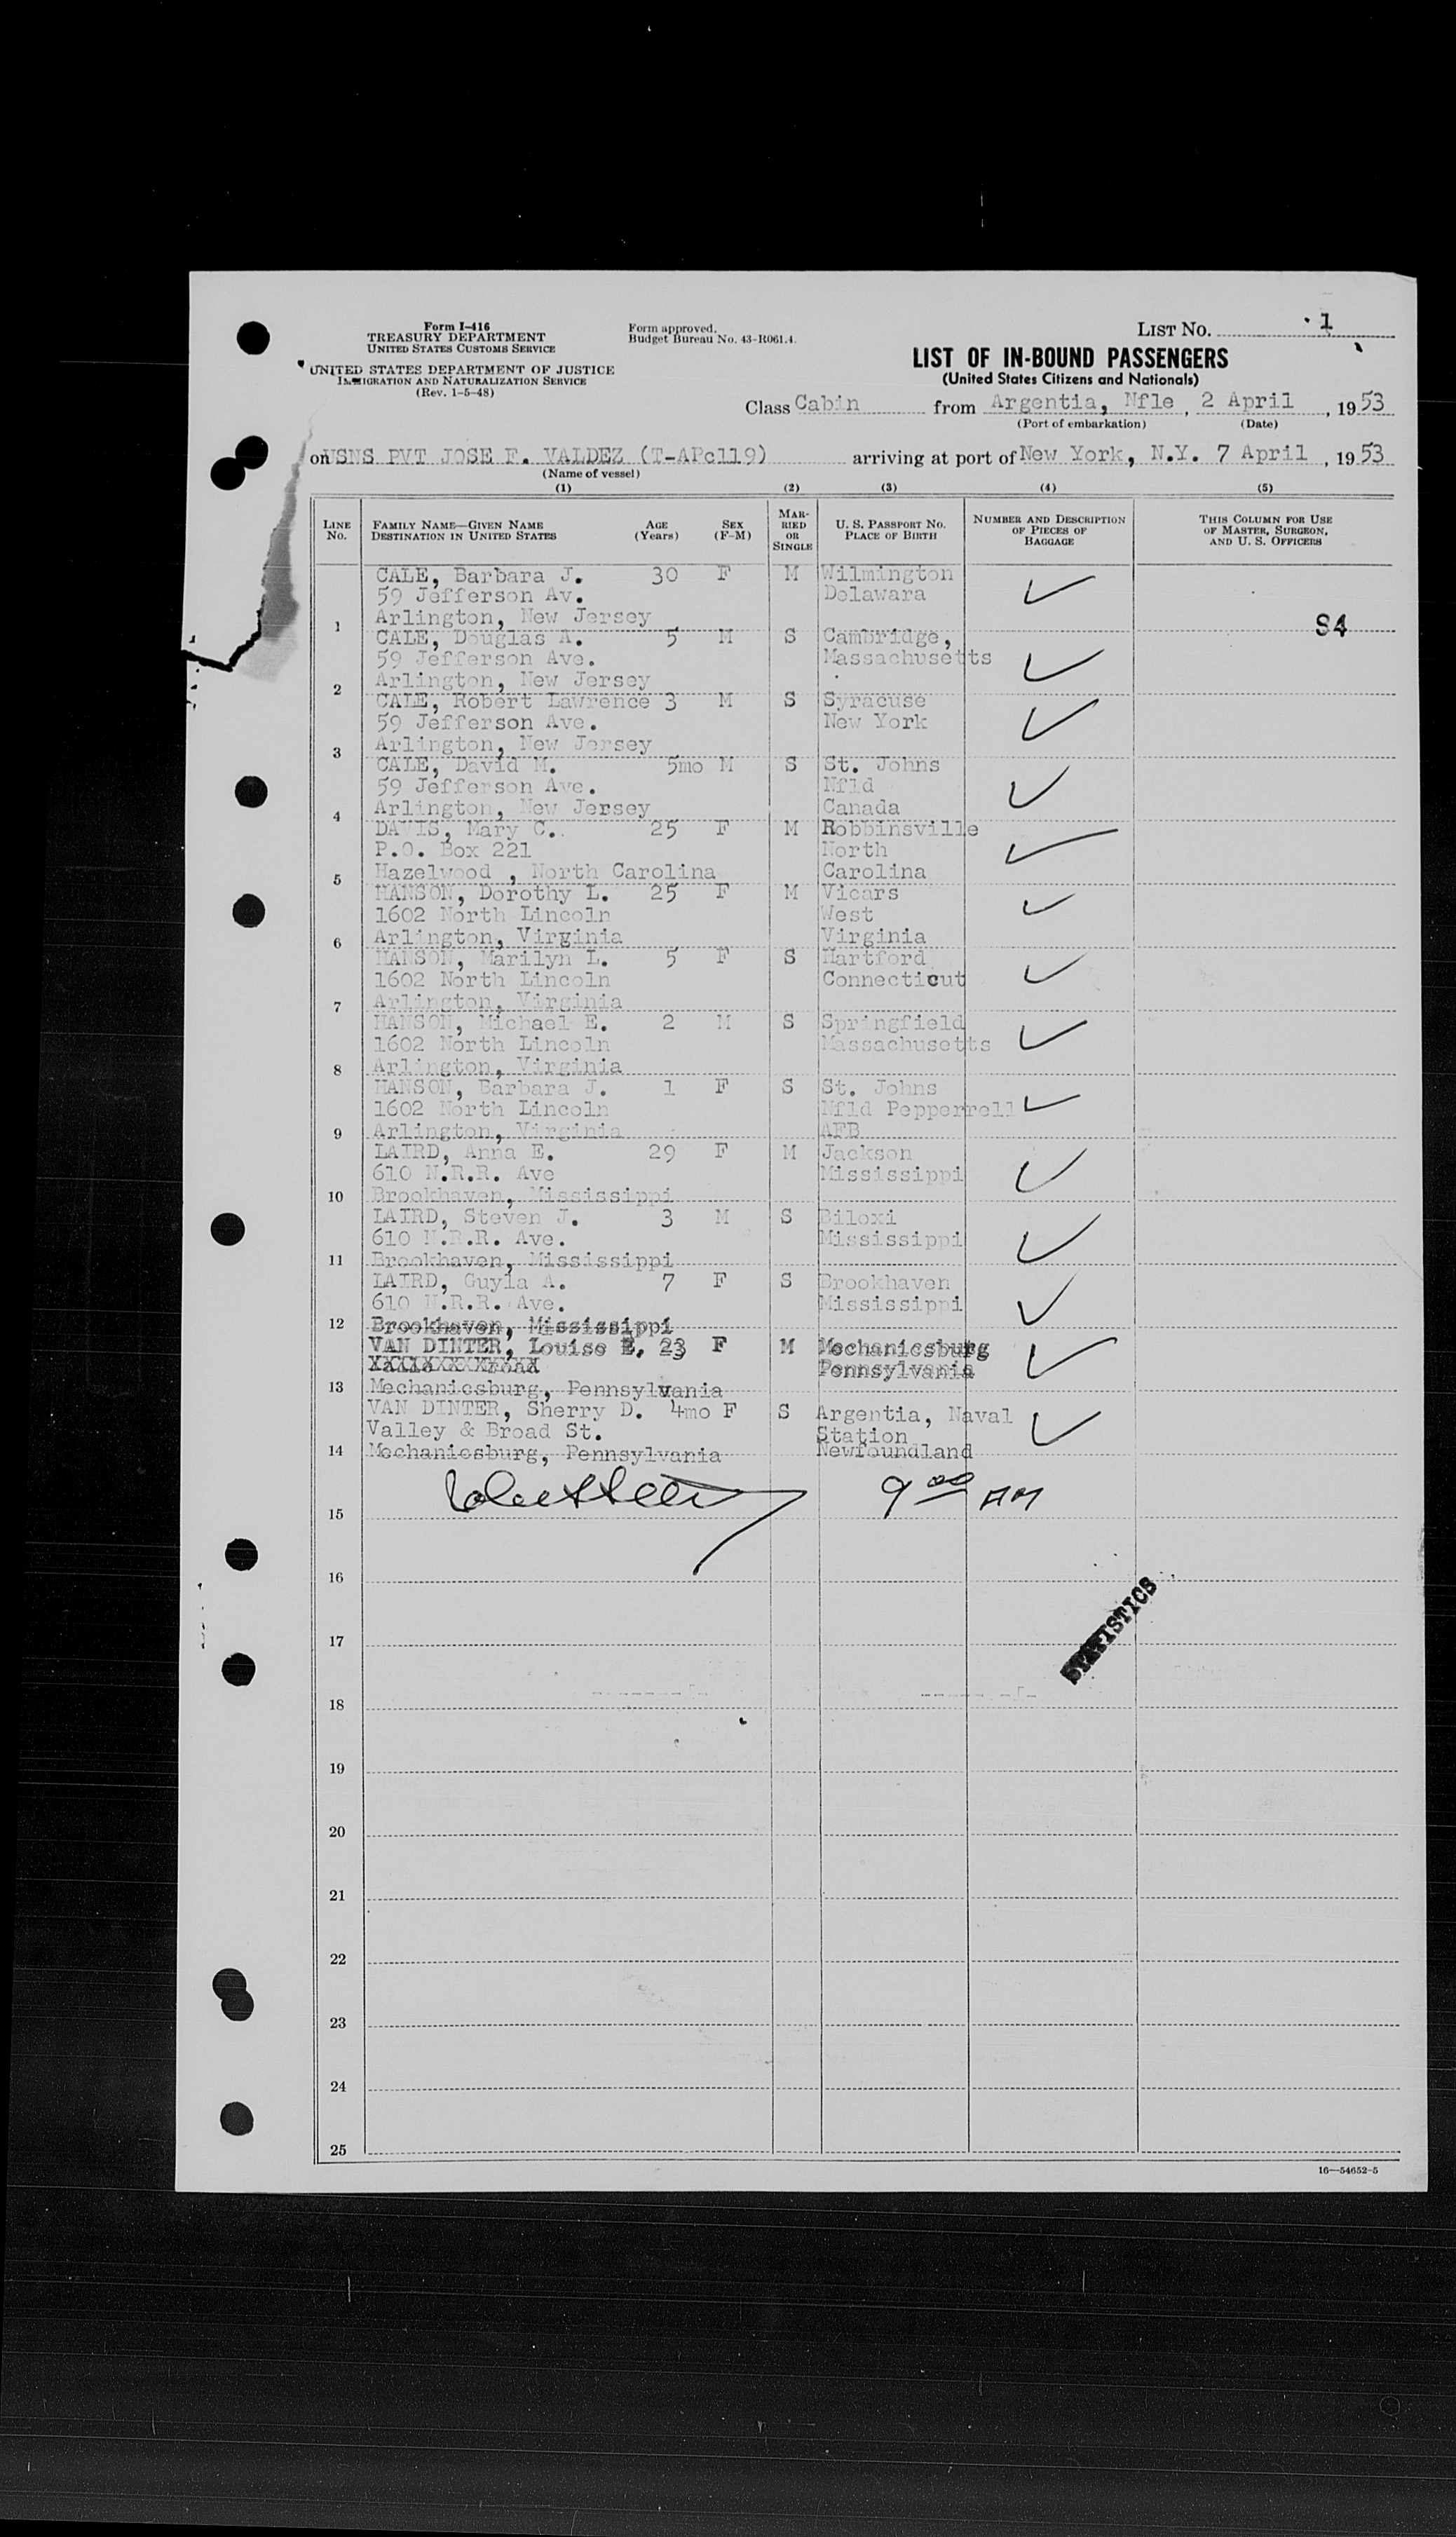 Form I-416
TREASURY DEPARTMENT
UNITED STATES CUSTOMS SERVICE
UNITED STATES DEPARTMENT OF JUSTICE
IMMIGRATION AND NATURALIZATION SERVICE
(Rev. 1-5-48)
Form approved.
Budget Bureau No. 43-R061.4.
LIST NO. 1
LIST OF IN-BOUND PASSENGERS
(United States Citizens and Nationals)
Class Cabin from Argentia, Nfle, 2 April, 1953
(Port of embarkation) (Date)
on USNS PVT JOSE F. VALDEZ (T-APc119) arriving at port of New York, N.Y. 7 April, 1953
(Name of vessel)
(1) (2) (3) (4) (5)
LINE NO. FAMILY NAME—GIVEN NAME DESTINATION IN UNITED STATES AGE (Years) SEX (F-M) MARRIED OR SINGLE U. S. PASSPORT NO. PLACE OF BIRTH NUMBER AND DESCRIPTION OF PIECES OF BAGGAGE THIS COLUMN FOR USE OF MASTER, SURGEON, AND U. S. OFFICERS
CALE, Barbara J. 30 F M Wilmington
59 Jefferson Av. Delawara
1 Arlington, New Jersey 84
CALE, Douglas A. 5 M S Cambridge,
59 Jefferson Ave. Massachusetts
2 Arlington, New Jersey
CALE, Robert Lawrence 3 M S Syracuse
59 Jefferson Ave. New York
3 Arlington, New Jersey
CALE, David M. 5mo M S St. Johns
59 Jefferson Ave. Nfld
4 Arlington, New Jersey Canada
DAVIS, Mary C. 25 F M Robbinsville
P.O. Box 221 North
5 Hazelwood , North Carolina Carolina
HANSON, Dorothy L. 25 F M Vicars
1602 North Lincoln West
6 Arlington, Virginia Virginia
HANSON, Marilyn L. 5 F S Hartford
1602 North Lincoln Connecticut
7 Arlington, Virginia
HANSON, Michael E. 2 M S Springfield
1602 North Lincoln Massachusetts
8 Arlington, Virginia
HANSON, Barbara J. 1 F S St. Johns
1602 North Lincoln Nfld Pepperrell
9 Arlington, Virginia AFB
LAIRD, Anna E. 29 F M Jackson
610 N.R.R. Ave Mississippi
10 Brookhaven, Mississippi
LAIRD, Steven J. 3 M S Biloxi
610 N.R.R. Ave. Mississippi
11 Brookhaven, Mississippi
LAIRD, Guyla A. 7 F S Brookhaven
610 N.R.R. Ave. Mississippi
12 Brookhaven, Mississippi
VAN DINTER, Louise E. 23 F M Mechanicsburg
Pennsylvania
13 Mechanicsburg, Pennsylvania
VAN DINTER, Sherry D. 4mo F S Argentia, Naval
Valley & Broad St. Station
14 Mechanicsburg, Pennsylvania Newfoundland
9 00 AM
15
16
STATISTICS
17
18
19
20
21
22
23
24
25
16—54652-5